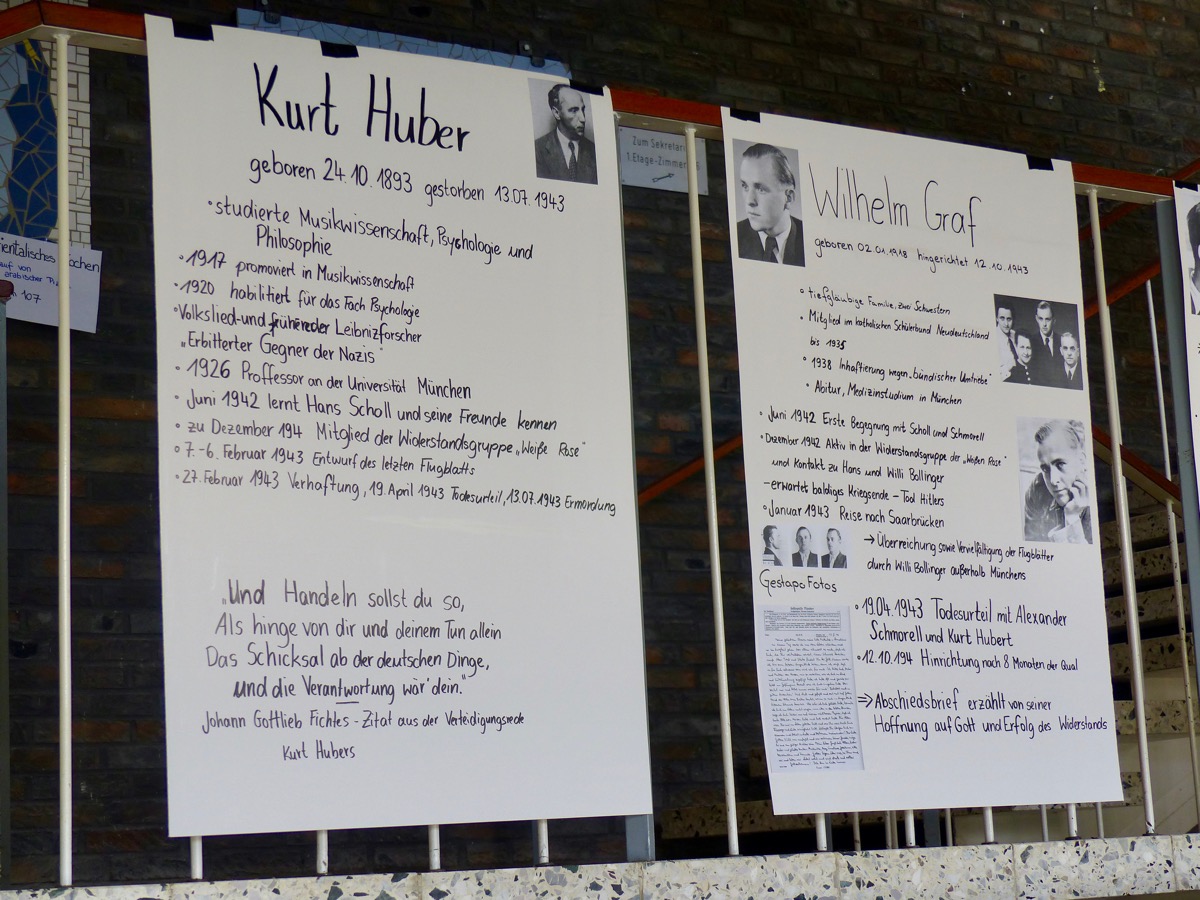 Kurt Huber
geboren 24.10.1893 gestorben 13.07.1943
•studierte Musikwissenschaft, Psychologie und
Philosophie
•1917 promoviert in Musikwissenschaft
•1920 habilitiert für das Fach Psychologie
•Volkslied-und führender Leibnizforscher
„Erbitterter Gegner der Nazis"
• 1926 Proffessor an der Universität München
• Juni 1942 lernt Hans Scholl und seine Freunde kennen
• zu Dezember 194 Mitglied der Widerstandsgruppe „Weiße Rose"
• 7.-6. Februar 1943 Entwurf des letzten Flugblatts
•27. Februar 1943 Verhaftung, 19. April 1943 Todesurteil, 13.07.1943 Ermordung
„Und Handeln sollst du so,
Als hinge von dir und deinem Tun allein
Das Schicksal ab der deutschen Dinge,
und die Verantwortung wär' dein."
Johann Gottlieb Fichtes - Zitat aus der Verteidigungsrede
Kurt Hubers
Zum Sekretari
1.Etage-Zimmer
Wilhelm Graf
geboren 02.01.1918 hingerichtet 12.10.1943
• tiefgläubige Familie, zwo Schwestern
• Mitglied im katholischen Schülerbund Neudeutschland
bis 1935
• 1938 Inhaftierung wegen „bündischer Umtriebe"
• Abitur, Medizinstudium in München
• Juni 1942 Erste Begegnung mit Scholl und Schmorell
• Dezember 1942 Aktiv in der Widerstandsgruppe der „Weißen Rose"
und Kontakt zu Hans und Willi Bollinger
-erwartet baldiges Kriegsende - Tod Hitlers
•Januar 1943 Reise nach Saarbrücken
→ Überreichung sowie Vervielfältigung der Flugblätter
durch Willi Bollinger außerhalb Münchens
Gestapo Fotos
• 19.04.1943 Todesurteil mit Alexander
Schmorell und Kurt Hubert
•12.10.194 Hinrichtung nach 8 Monaten der Qual
⇒ Abschiedsbrief erzählt von seiner
Hoffnung auf Gott und Erfolg des Widerstands
ientalisches ochen
auf von
arabischer
107